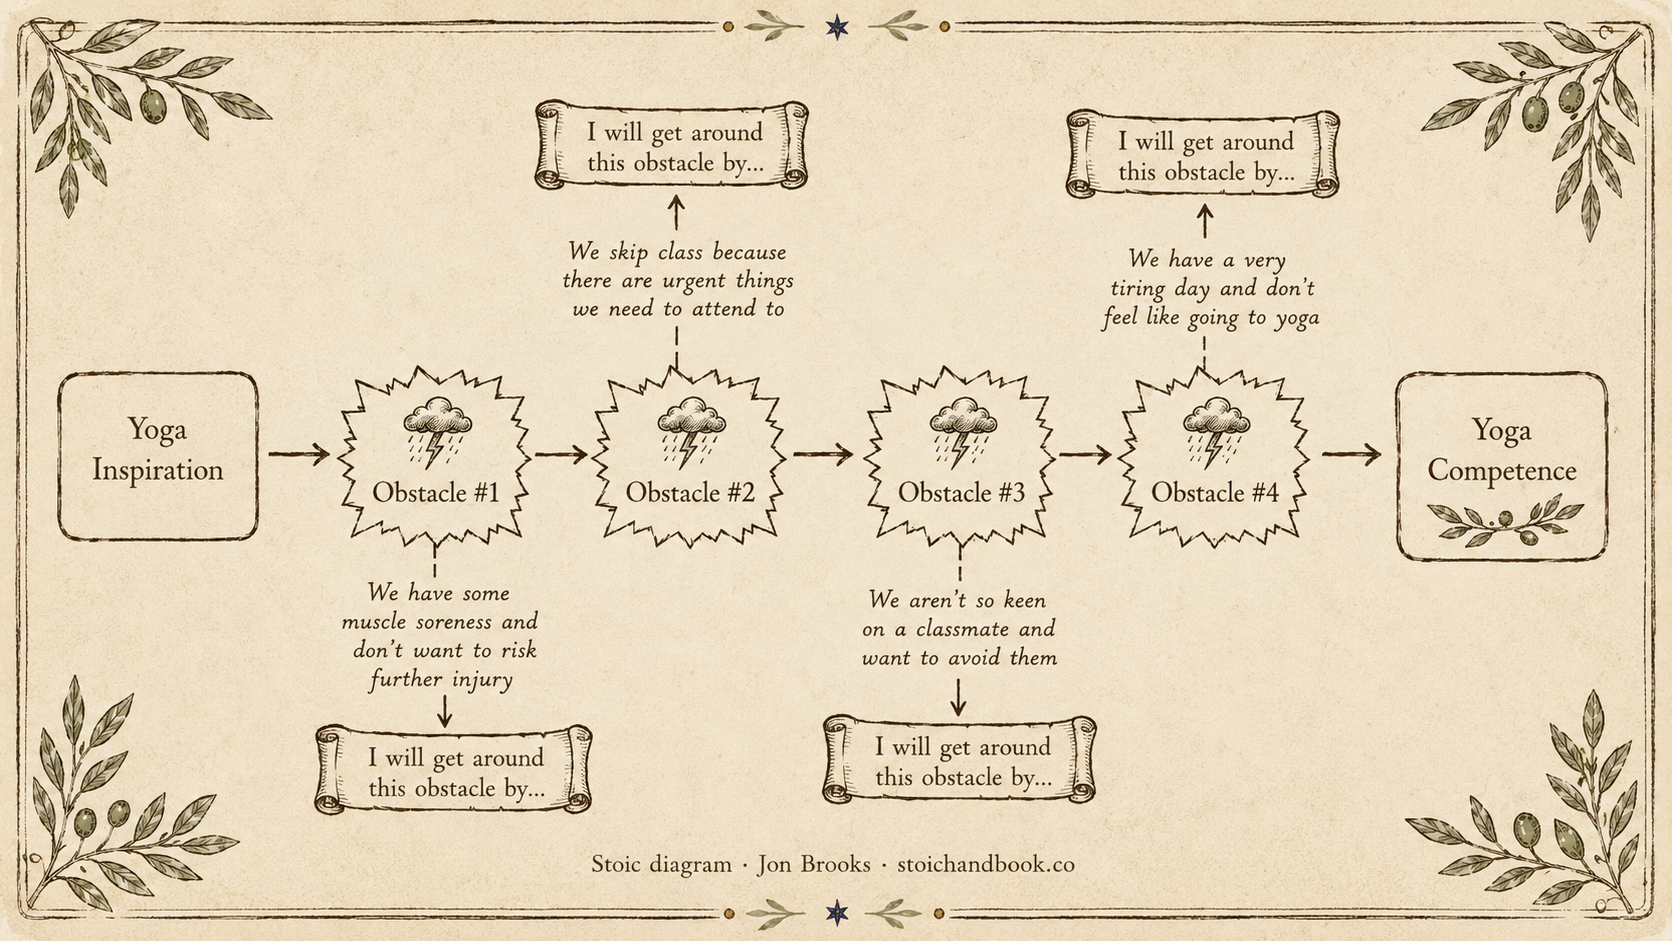 I will get around
this obstacle by...
I will get around
this obstacle by...
We skip class because
there are urgent things
we need to attend to
We have a very
tiring day and don't
feel like going to yoga
Yoga
Inspiration
Obstacle #1
Obstacle #2
Obstacle #3
Obstacle #4
Yoga
Competence
We have some
muscle soreness and
don't want to risk
further injury
We aren't so keen
on a classmate and
want to avoid them
I will get around
this obstacle by...
I will get around
this obstacle by...
Stoic diagram · Jon Brooks · stoichandbook.co